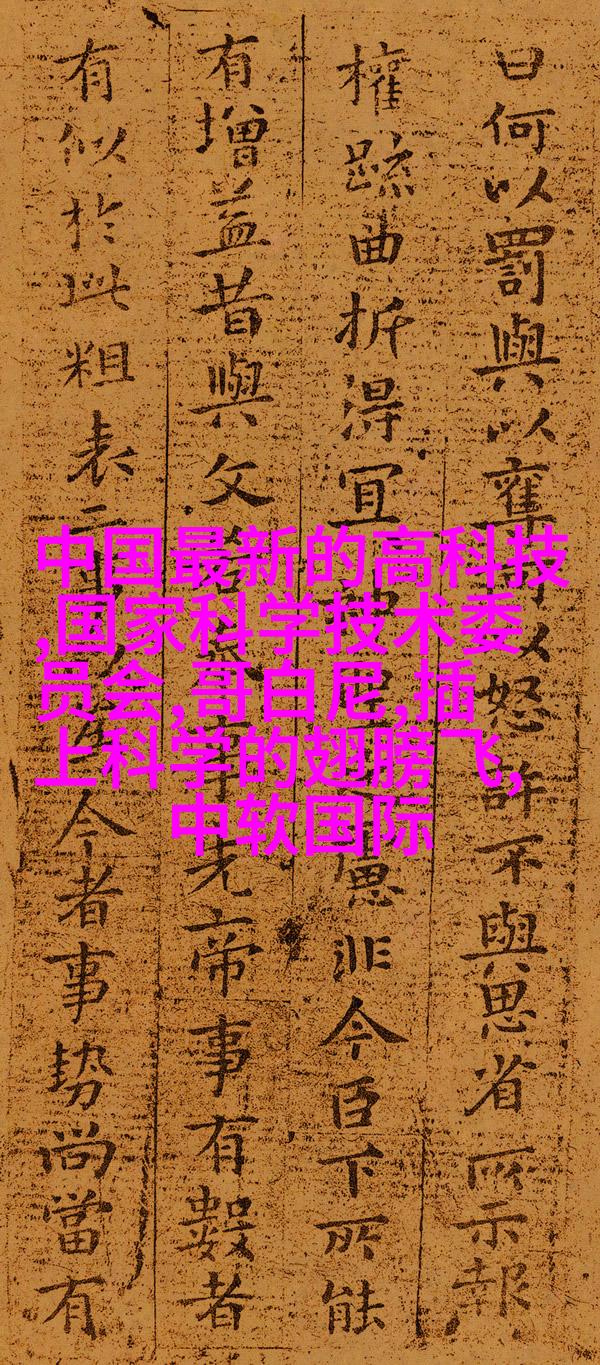 曰何以罰與以奪
以怒許不與思省所示報
權疏曲折得宜
愚非今臣下所能
有增益昔與文
先帝事有數者
有似於此粗表二
今者事势尚當有
中国最新的高科技
,国家科学技术委
员会,哥白尼,插
上科学的翅膀飞,
中软国际